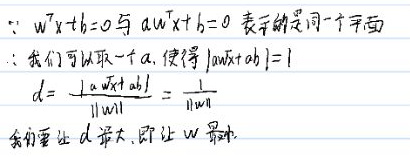 ∵ wᵀx+b=0 与 awᵀx+b=0 表示的是同一个平面
∴ 我们可以取一个a, 使得 |awᵀx+ab|=1
d = |awᵀx+ab| / ||w|| = 1 / ||w||
我们要让 d 最大, 即让 w 最小